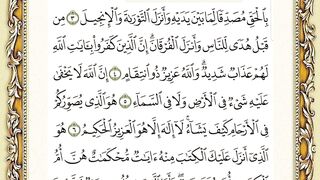 بِالْحَقِّ مُصَدِّقًا لِّمَا بَيْنَ يَدَيْهِ وَأَنزَلَ التَّوْرَىٰةَ وَالْإِنجِيلَ ٣ مِن
قَبْلُ هُدًى لِّلنَّاسِ وَأَنزَلَ الْفُرْقَانَ ۗ إِنَّ الَّذِينَ كَفَرُوا۟ بِـَٔايَـٰتِ اللَّهِ
لَهُمْ عَذَابٌ شَدِيدٌ ۗ وَاللَّهُ عَزِيزٌ ذُو انتِقَامٍ ٤ إِنَّ اللَّهَ لَا يَخْفَىٰ
عَلَيْهِ شَىْءٌ فِى الْأَرْضِ وَلَا فِى السَّمَآءِ ٥ هُوَ الَّذِى يُصَوِّرُكُمْ
فِى الْأَرْحَامِ كَيْفَ يَشَآءُ ۚ لَآ إِلَـٰهَ إِلَّا هُوَ الْعَزِيزُ الْحَكِيمُ ٦ هُوَ
الَّذِىٓ أَنزَلَ عَلَيْكَ الْكِتَـٰبَ مِنْهُ ءَايَـٰتٌ مُّحْكَمَـٰتٌ هُنَّ أُمُّ